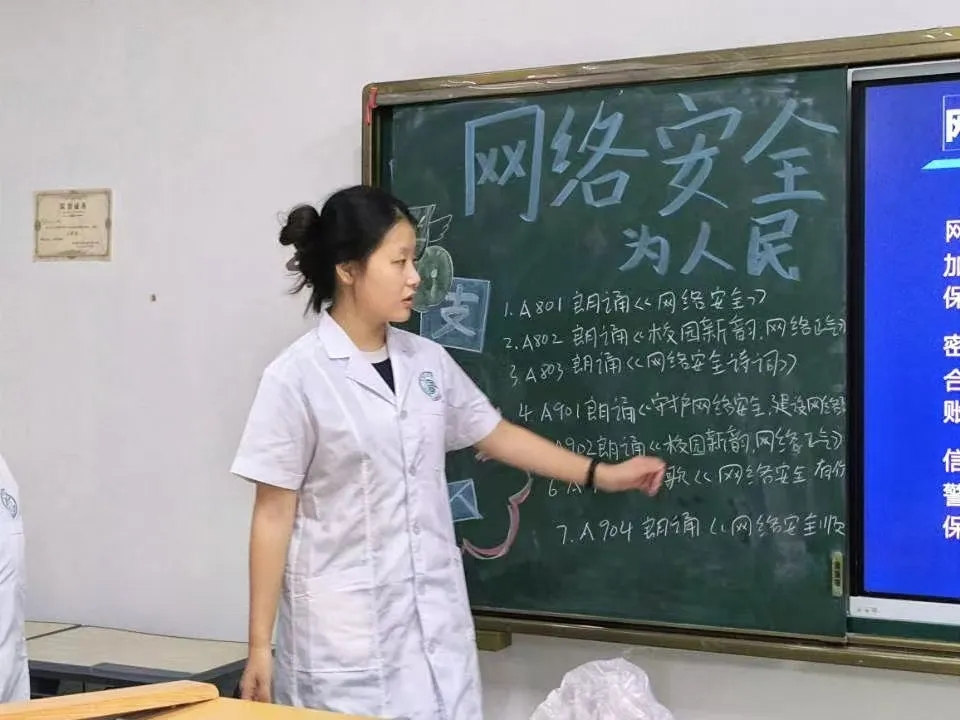 网络安全
为人民
支
1. A801 朗诵《网络安全》
2. A802 朗诵《校园新韵.网络正气》
3. A803 朗诵《网络安全诗词》
4. A901 朗诵《守护网络安全.建设网络
A902 朗诵《校园新韵.网络正气》
6. A 歌《网络安全 有你
7. A904 朗诵《网络安全顺
网
网
加
保
密
合
账
信
警
保